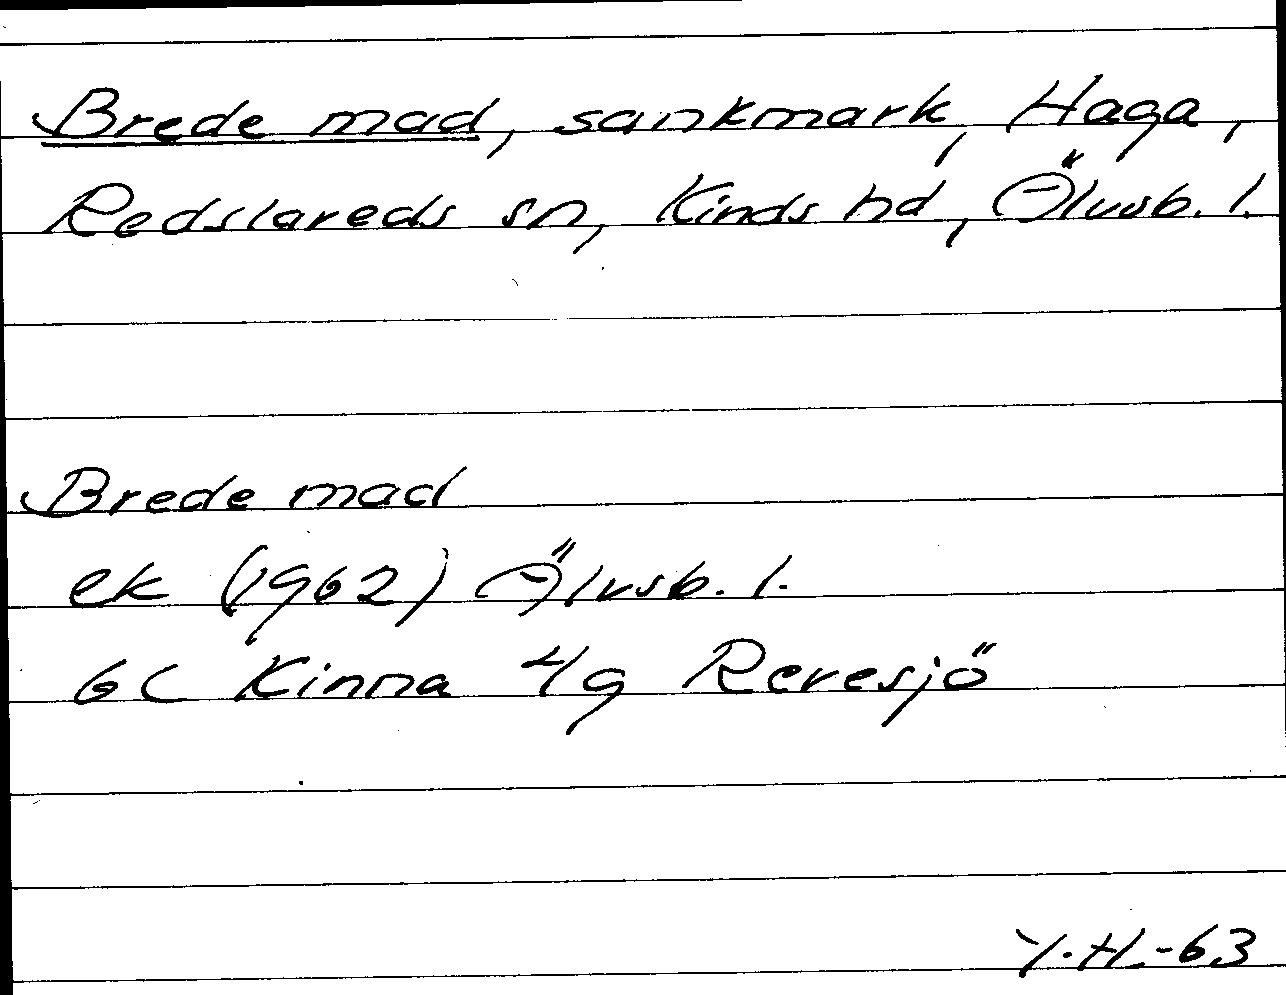 Brede mad, sankmark, Haga,
Redslareds sn, Kinds hd, Älvsb. l.
Brede mad
ek (1962) Älvsb. l.
6C Kinna 4g Reresjö
Y.H.-63